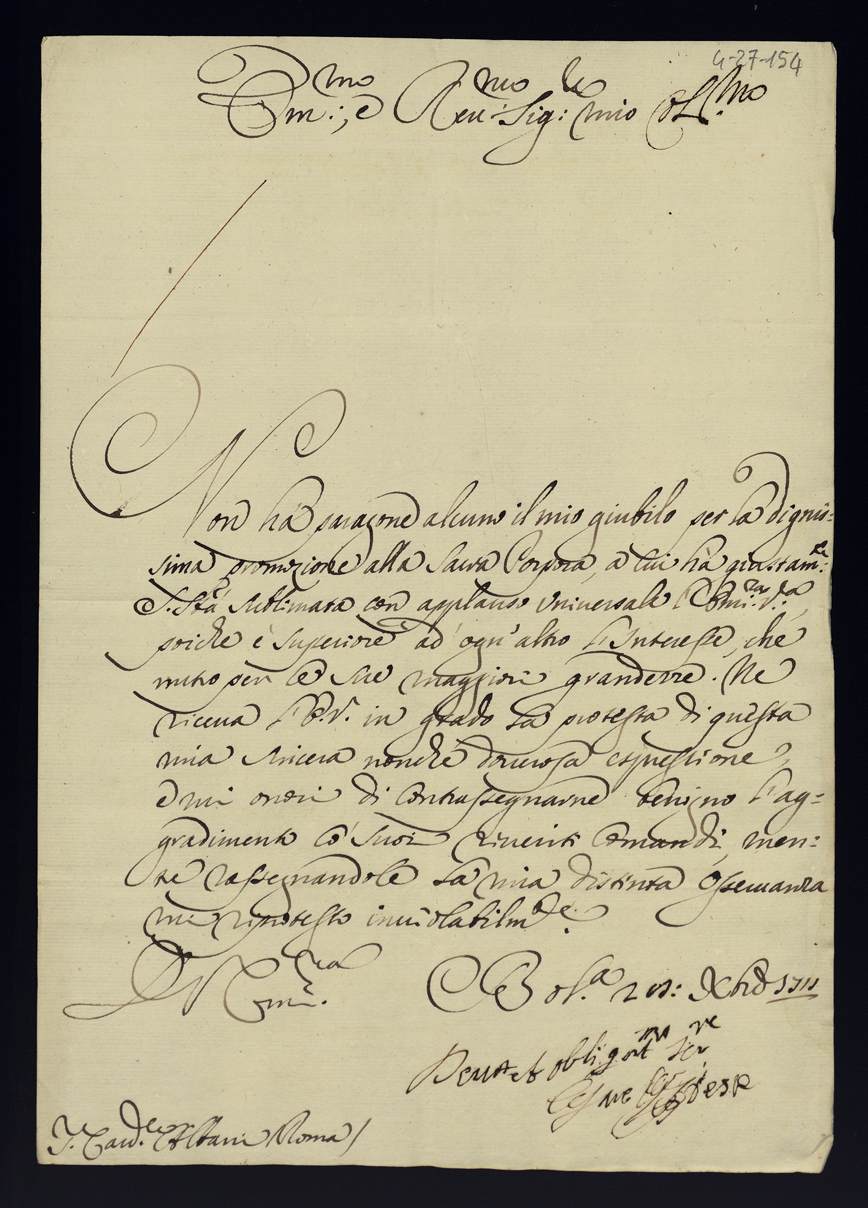 4-27-154
Em:mo, e Reu:mo Sig:re mio Ol:mo
Non hà paragone alcuno il mio giubilo per la dignis=
sima promozione alla Sacra Porpora, a cui hà giustam:te
S. Sta sublimata con applauso vniuersale l'Emi:za V:a,
poiche è superiore ad ogn'altro l'Interesse, che
nutro per le sue maggiori grandezze. Ne
riceua l'E.V. in grado la protesta di questa
mia sincera nonche douerosa espressione,
e mi onori di contrassegnarne benigno l'ag=
gradimento co' suoi riueriti Comandi, men=
tre rassegnandole la mia distinta Osseruanza
mi riprotesto inuiolabilm:te
Di V. Emi:za
Bol:a 20: Xbre 1711
Deuot et oblig:mo Ser:re
Cesare
S. Card:le Albani Roma/